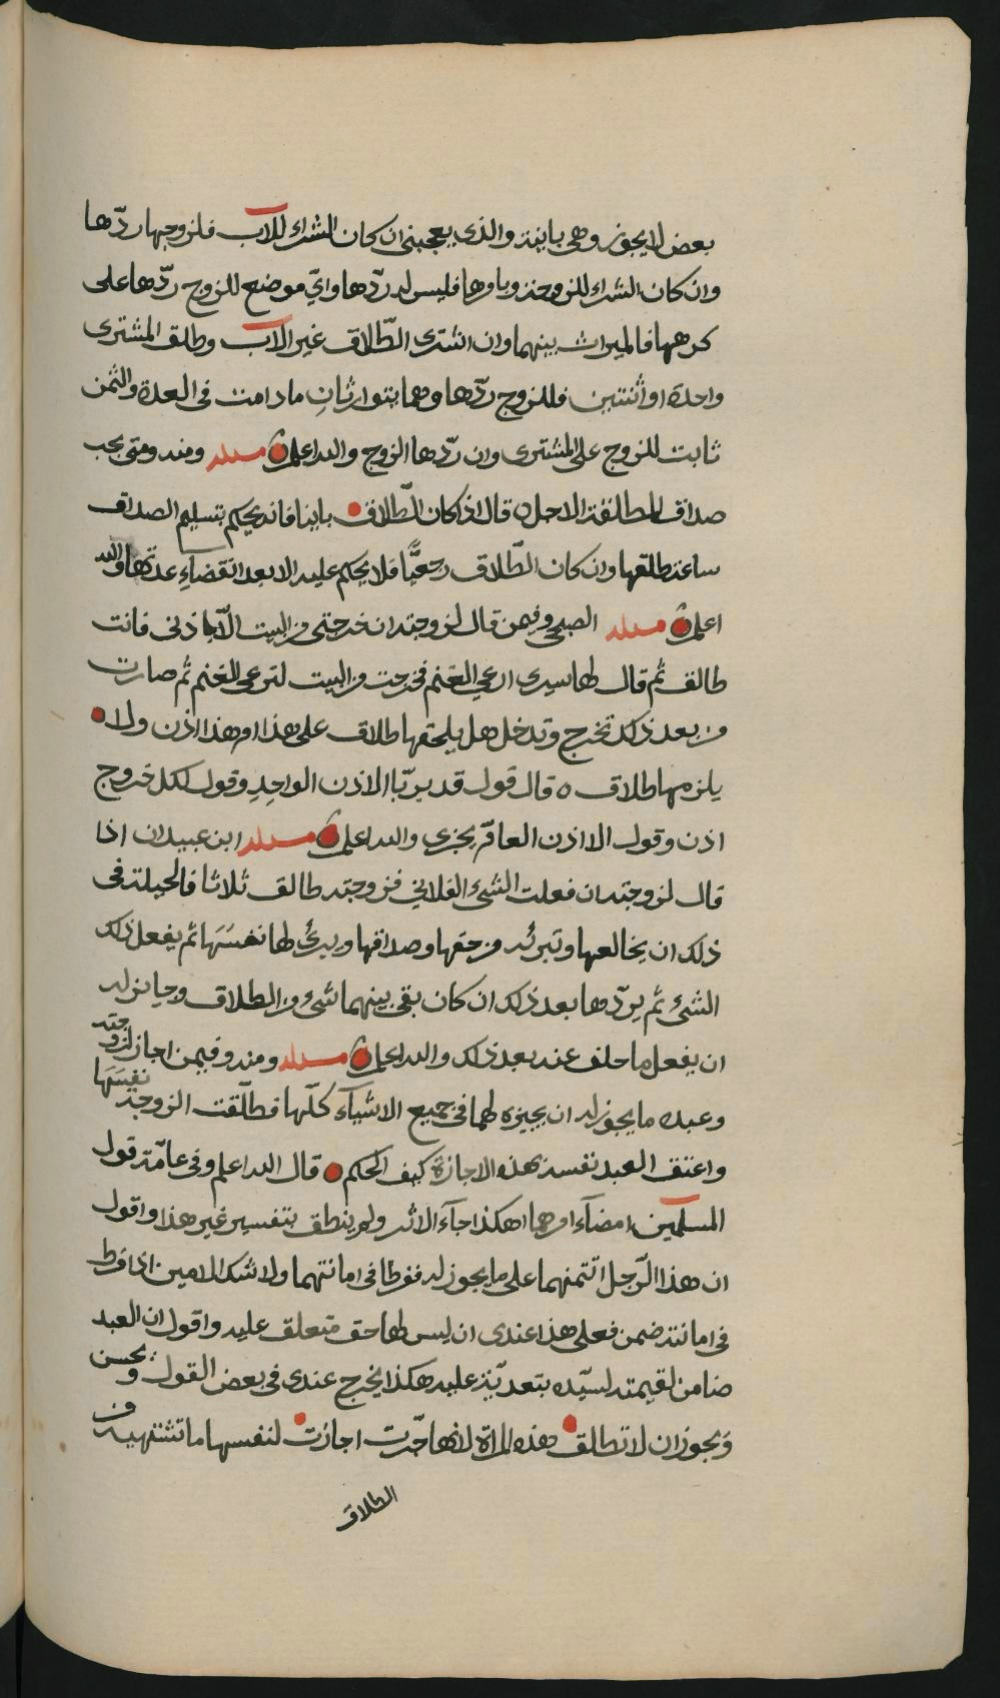 بعض لا يجوز وهي باينة والذي يعجبني ان كان الشراء للاب فلزوجها ردّها
وان كان الشراء للزوجة وباوها فليس له ردّها وايّ موضع للزوج ردّها على
كرهها فالميراث بينهما وان اشترى الطّلاق غير الاب وطلق المشترى
واحدة او اثنتين فللزوج ردّها وهما يتوارثانِ ما دامت فى العدة والثمن
ثابت للزوج على المشترى وان ردّها الزوج والله اعلم مسئلة ومنه ومتى يجب
صداق المطلقة الاجل قال اذا كان الطّلاق باينا فانه يحكم بتسليم الصداق
ساعة طلقها وان كان الطّلاق رجعيًّا فلا يحكم عليه الا بعد انقضاءِ عدتها والله
اعلم مسئلة الصبحي وفيمن قال لزوجته ان خرجتى من البيت الّا باذنى فانت
طالق ثم قال لها سيرى ارعي الغنم فخرجت من البيت لترعى الغنم ثم صارت
من بعد ذلك تخرج وتدخل هل يلحقها طلاق على هذا ام هذا اذن ولا
يلزمها طلاق قال قول قد برّ بالاذن الواحدِ وقول لكل خروج
اذن وقول الا اذن العامّ يجزى والله اعلم مسئلة ابن عبيدان اذا
قال لزوجته ان فعلت الشىء الفلاني فزوجته طالق ثلاثا فالحيلة فى
ذلك ان يخالعها وتبرئه من حقها وصداقها ويبرئ لها نفسَهَا ثم يفعل ذلك
الشئ ثم يردّها بعد ذلك ان كان بقي بينهما شىء من الطلاق وجايز له
ان يفعل ما حلف عنه بعد ذلك والله اعلم مسئلة ومنه وفيمن اجاز لزوجته
وعبده ما يجوز له ان يجيزه لهما فى جميع الاشيآء كلّها فطلّقت الزوجة نفسَهَا
واعتق العبد نفسه بهذه الاجازة كيف الحكم قال الله اعلم وفى عامّة قول
المسلمين امضآء امرهما هكذا جآء الاثر ولم ينطق بتفسير غير هذا واقول
ان هذا الرّجل ائتمنهما على ما يجوز له ففرطا فى امانتهما ولا شك الامين اذا فرط
فى امانته ضمن فعلى هذا عندى ان ليس لها حق متعلق عليه واقول ان العبد
ضامن لقيمته لسيّده بتعديّه عليه هكذا يخرج عندى فى بعض القول ويحسن
وَيجوز ان لا تطالق هذه المراة لانها حرّت اجازت لنفسها ما تشتهيه من
الطلاق